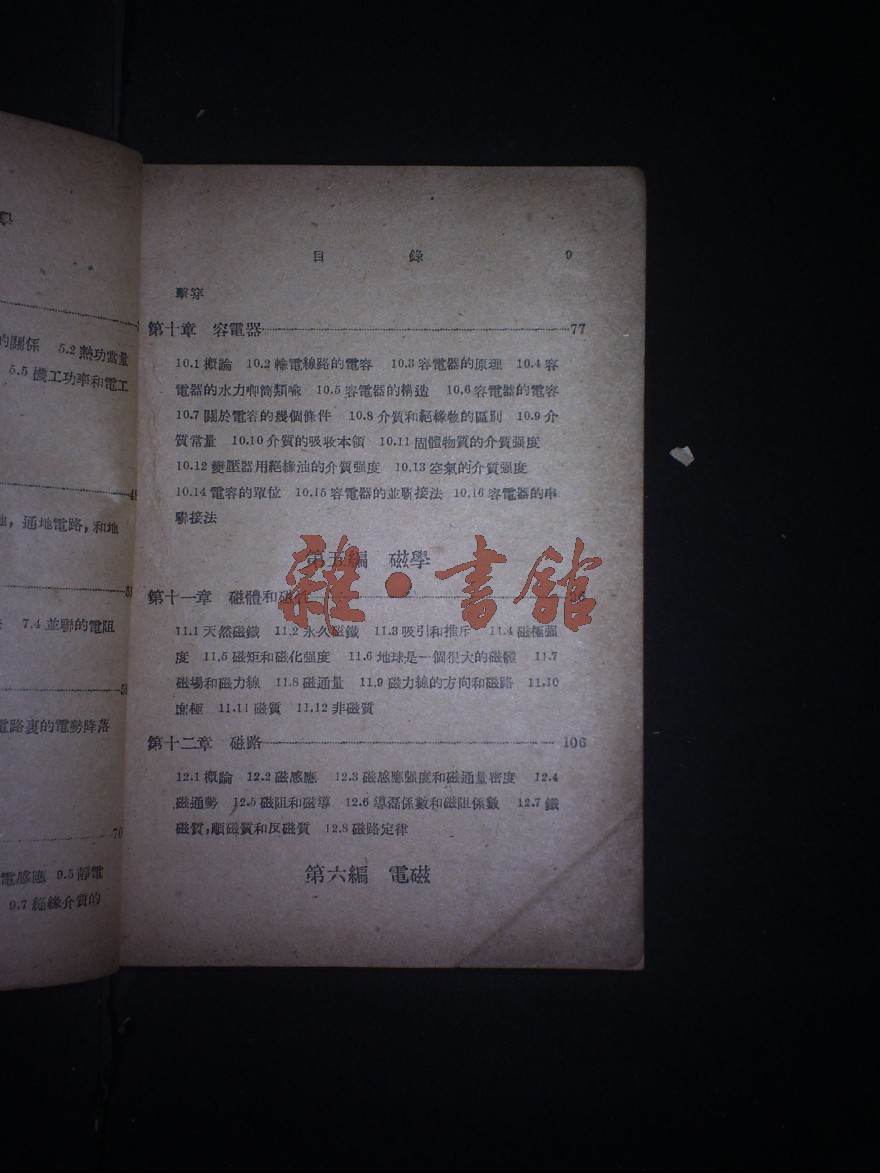 的關係 5.2 熱功當量
5.5 機工功率和電工
地，通地電路，和地
7.4 並聯的電阻
電路裏的電勢降落
70
電感應 9.5 靜電
9.7 絕緣介質的
目 錄 9
擊穿
第十章 容電器 77
10.1 概論 10.2 輸電線路的電容 10.3 容電器的原理 10.4 容
電器的水力唧筒類喩 10.5 容電器的構造 10.6 容電器的電容
10.7 關於電容的幾個條件 10.8 介質和絕緣物的區別 10.9 介
質常量 10.10 介質的吸收本領 10.11 固體物質的介質强度
10.12 變壓器用絕緣油的介質强度 10.13 空氣的介質强度
10.14 電容的單位 10.15 容電器的並聯接法 10.16 容電器的串
聯接法
第五編 磁學
雜·書館
第十一章 磁體和磁性
11.1 天然磁鐵 11.2 永久磁鐵 11.3 吸引和推斥 11.4 磁極强
度 11.5 磁矩和磁化强度 11.6 地球是一個很大的磁體 11.7
磁場和磁力線 11.8 磁通量 11.9 磁力線的方向和磁路 11.10
庶極 11.11 磁質 11.12 非磁質
第十二章 磁路 106
12.1 概論 12.2 磁感應 12.3 磁感應强度和磁通量密度 12.4
磁通勢 12.5 磁阻和磁導 12.6 導磁係數和磁阻係數 12.7 鐵
磁質，順磁質和反磁質 12.8 磁路定律
第六編 電磁